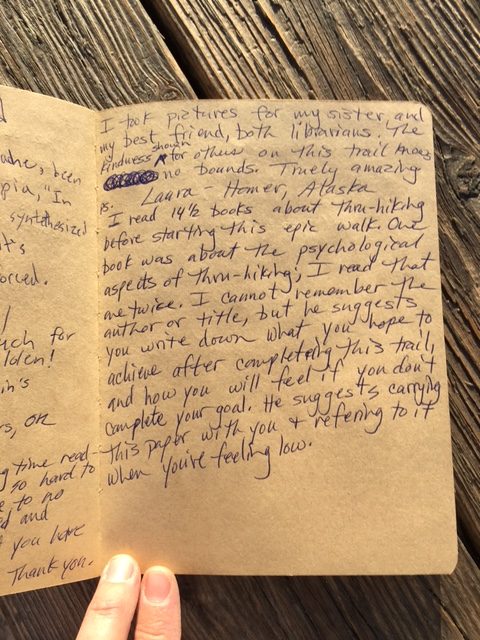 ache, been
pia, "In
synthesized
it's
orced.
uch for
lden!
in's
rs, OR
ng time read-
so hard to
e to no
ed and
you have
Thank you.
I took pictures for my sister, and
my best friend, both librarians. The
kindness shown for others on this trail knows
no bounds. Truely amazing
Laura - Homer, Alaska
ps. I read 14 1/2 books about thru-hiking
before starting this epic walk. One
book was about the psychological
aspects of thru-hiking, I read that
one twice. I cannot remember the
author or title, but he suggests
you write down what you hope to
achieve after completeing this trail,
and how you will feel if you don't
complete your goal. He suggests carrying
this paper with you & refering to it
when you're feeling low.